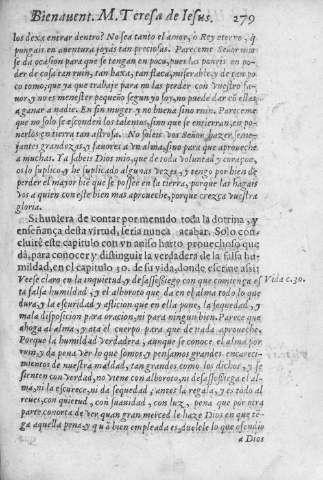 Bienauent. M. Teresa de Iesus. 279
los dexa entrar dentro? No sea tanto el amor, o Rey eterno, q̃
pongais en auentura joyas tan preciosas. Pareceme Señor mio
se da ocasion para que se tengan en poco, pues las poneis en po-
der de cosa tan ruin, tan baxa, tan flaca, miserable, y de tan po-
co tomo; que ya que trabaje para no las perder con vuestro fa-
uor, y no es menester pequeño segun yo soy, no puede dar cõ ellas
a ganar a nadie. En fin muger y no buena sino ruin. Pareceme
que no solo se esconden los talentos, sino que se entierran, en po-
nerlos en tierra tan astrosa. No soleis vos Señor hazer semej-
antes grandezas, y fauores a vn alma, sino para que aproueche
a muchas. Ya sabeis Dios mio, que de toda voluntad y coraçon,
os lo suplico, y he suplicado algunas vezes, y tengo por bien de
perder el mayor biẽ que se possee en la tierra, porque las hagais
vos a quien con este bien mas aproueche, porque crezca vuestra
gloria.
Si huuiera de contar por menudo toda la dotrina, y
enseñança desta virtud, seria nunca acabar. Solo con-
cluirè este capitulo con vn auiso harto prouechoso que
dà, para conocer y distinguir la verdadera de la falsa hu-
mildad, en el capitulo 30. de su vida, donde escriue assi:
Veese claro en la inquietud, y desassossiego con que comiença es
Vida c.30.
ta falsa humildad, y el alboroto que da en el alma todo lo que
dura, y la escuridad y aflicion que en ella pone, la sequedad, y
mala disposicion para oracion, ni para ningun bien. Parece que
ahoga al alma, y ata el cuerpo para que de nada aproueche.
Porque la humildad verdadera, aunque se conoce el alma por
ruin, y da pena ver lo que somos, y pensamos grandes encareci-
mientos de nuestra maldad, tan grandes como los dichos, y se
sienten con verdad, no viene con alboroto, ni desassossiega el al-
ma, ni la escurece, ni da sequedad, antes la regala, y es todo al
reues, con quietud, con suauidad, con luz, pena que por otra
parte conorta de ver quan gran merced le haze Dios en que tẽ-
ga aquella pena, y quã bien empleada es, duelele lo que ofendio
a Dios